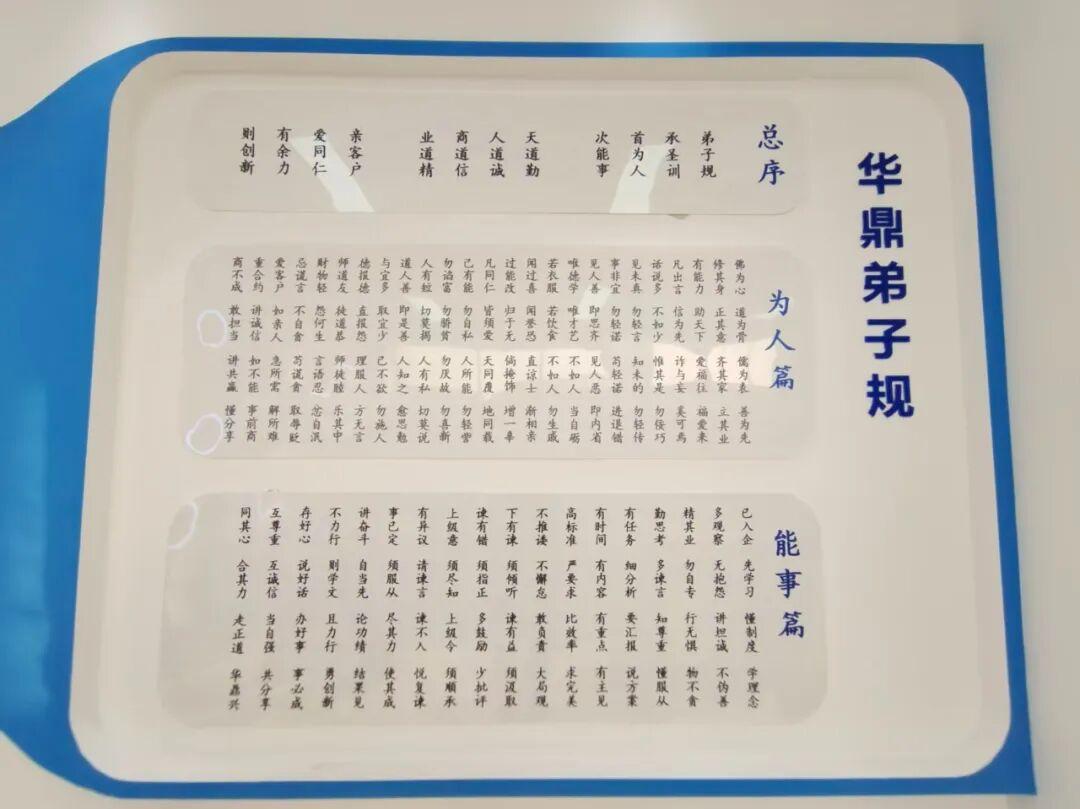 华鼎弟子规
总序
弟子规
承圣训
首为人
次能事
天道勤
人道诚
商道信
业道精
亲客户
爱同仁
有余力
则创新
为人篇
佛为心 道为骨 儒为表 善为先
修其身 正其意 齐其家 立其业
有能力 助天下 爱福往 福爱来
凡出言 信为先 诈与妄 奚可焉
话说多 不如少 惟其是 勿佞巧
见未真 勿轻言 知未的 勿轻传
事非宜 勿轻诺 苟轻诺 进退错
见人善 即思齐 见人恶 即内省
唯德学 唯才艺 不如人 当自砺
若衣服 若饮食 不如人 勿生戚
闻过喜 闻誉恐 直谅士 渐相亲
过能改 归于无 倘掩饰 增一辜
凡同仁 皆须爱 天同覆 地同载
己有能 勿自私 人所能 勿轻訾
勿谄富 勿骄贫 勿厌故 勿喜新
人有短 切莫揭 人有私 切莫说
道人善 即是善 人知之 愈思勉
与宜多 取宜少 己不欲 勿施人
德报德 直报怨 理服人 方无言
师道友 徒道恭 师徒睦 乐其中
财物轻 怨何生 言语忍 忿自泯
忌谎言 不自贪 苟谎贪 取辱贬
爱客户 如亲人 急所需 解所难
重合约 讲诚信 如不能 事前商
商不成 敢担当 讲共赢 懂分享
能事篇
已入企 先学习 懂制度 学理念
多观察 无抱怨 讲担诚 不伪善
精其业 勿自专 行无惧 物不贪
勤思考 多谏言 知尊重 懂服从
有任务 细分析 要汇报 说方案
有时间 有内容 有重点 有主见
高标准 严要求 比效率 求完美
不推诿 不懈怠 敢负责 大局观
下有谏 须倾听 谏有益 须汲取
谏有错 须指正 多鼓励 少批评
上级意 须尽知 上级令 须顺承
有异议 请谏言 谏不入 悦复谏
事已定 须服从 尽其力 使其成
讲奋斗 自当先 论功绩 结果见
不力行 则学文 且力行 勇创新
存好心 说好话 办好事 事必成
互尊重 互诚信 当自强 共分享
同其心 合其力 走正道 华鼎兴